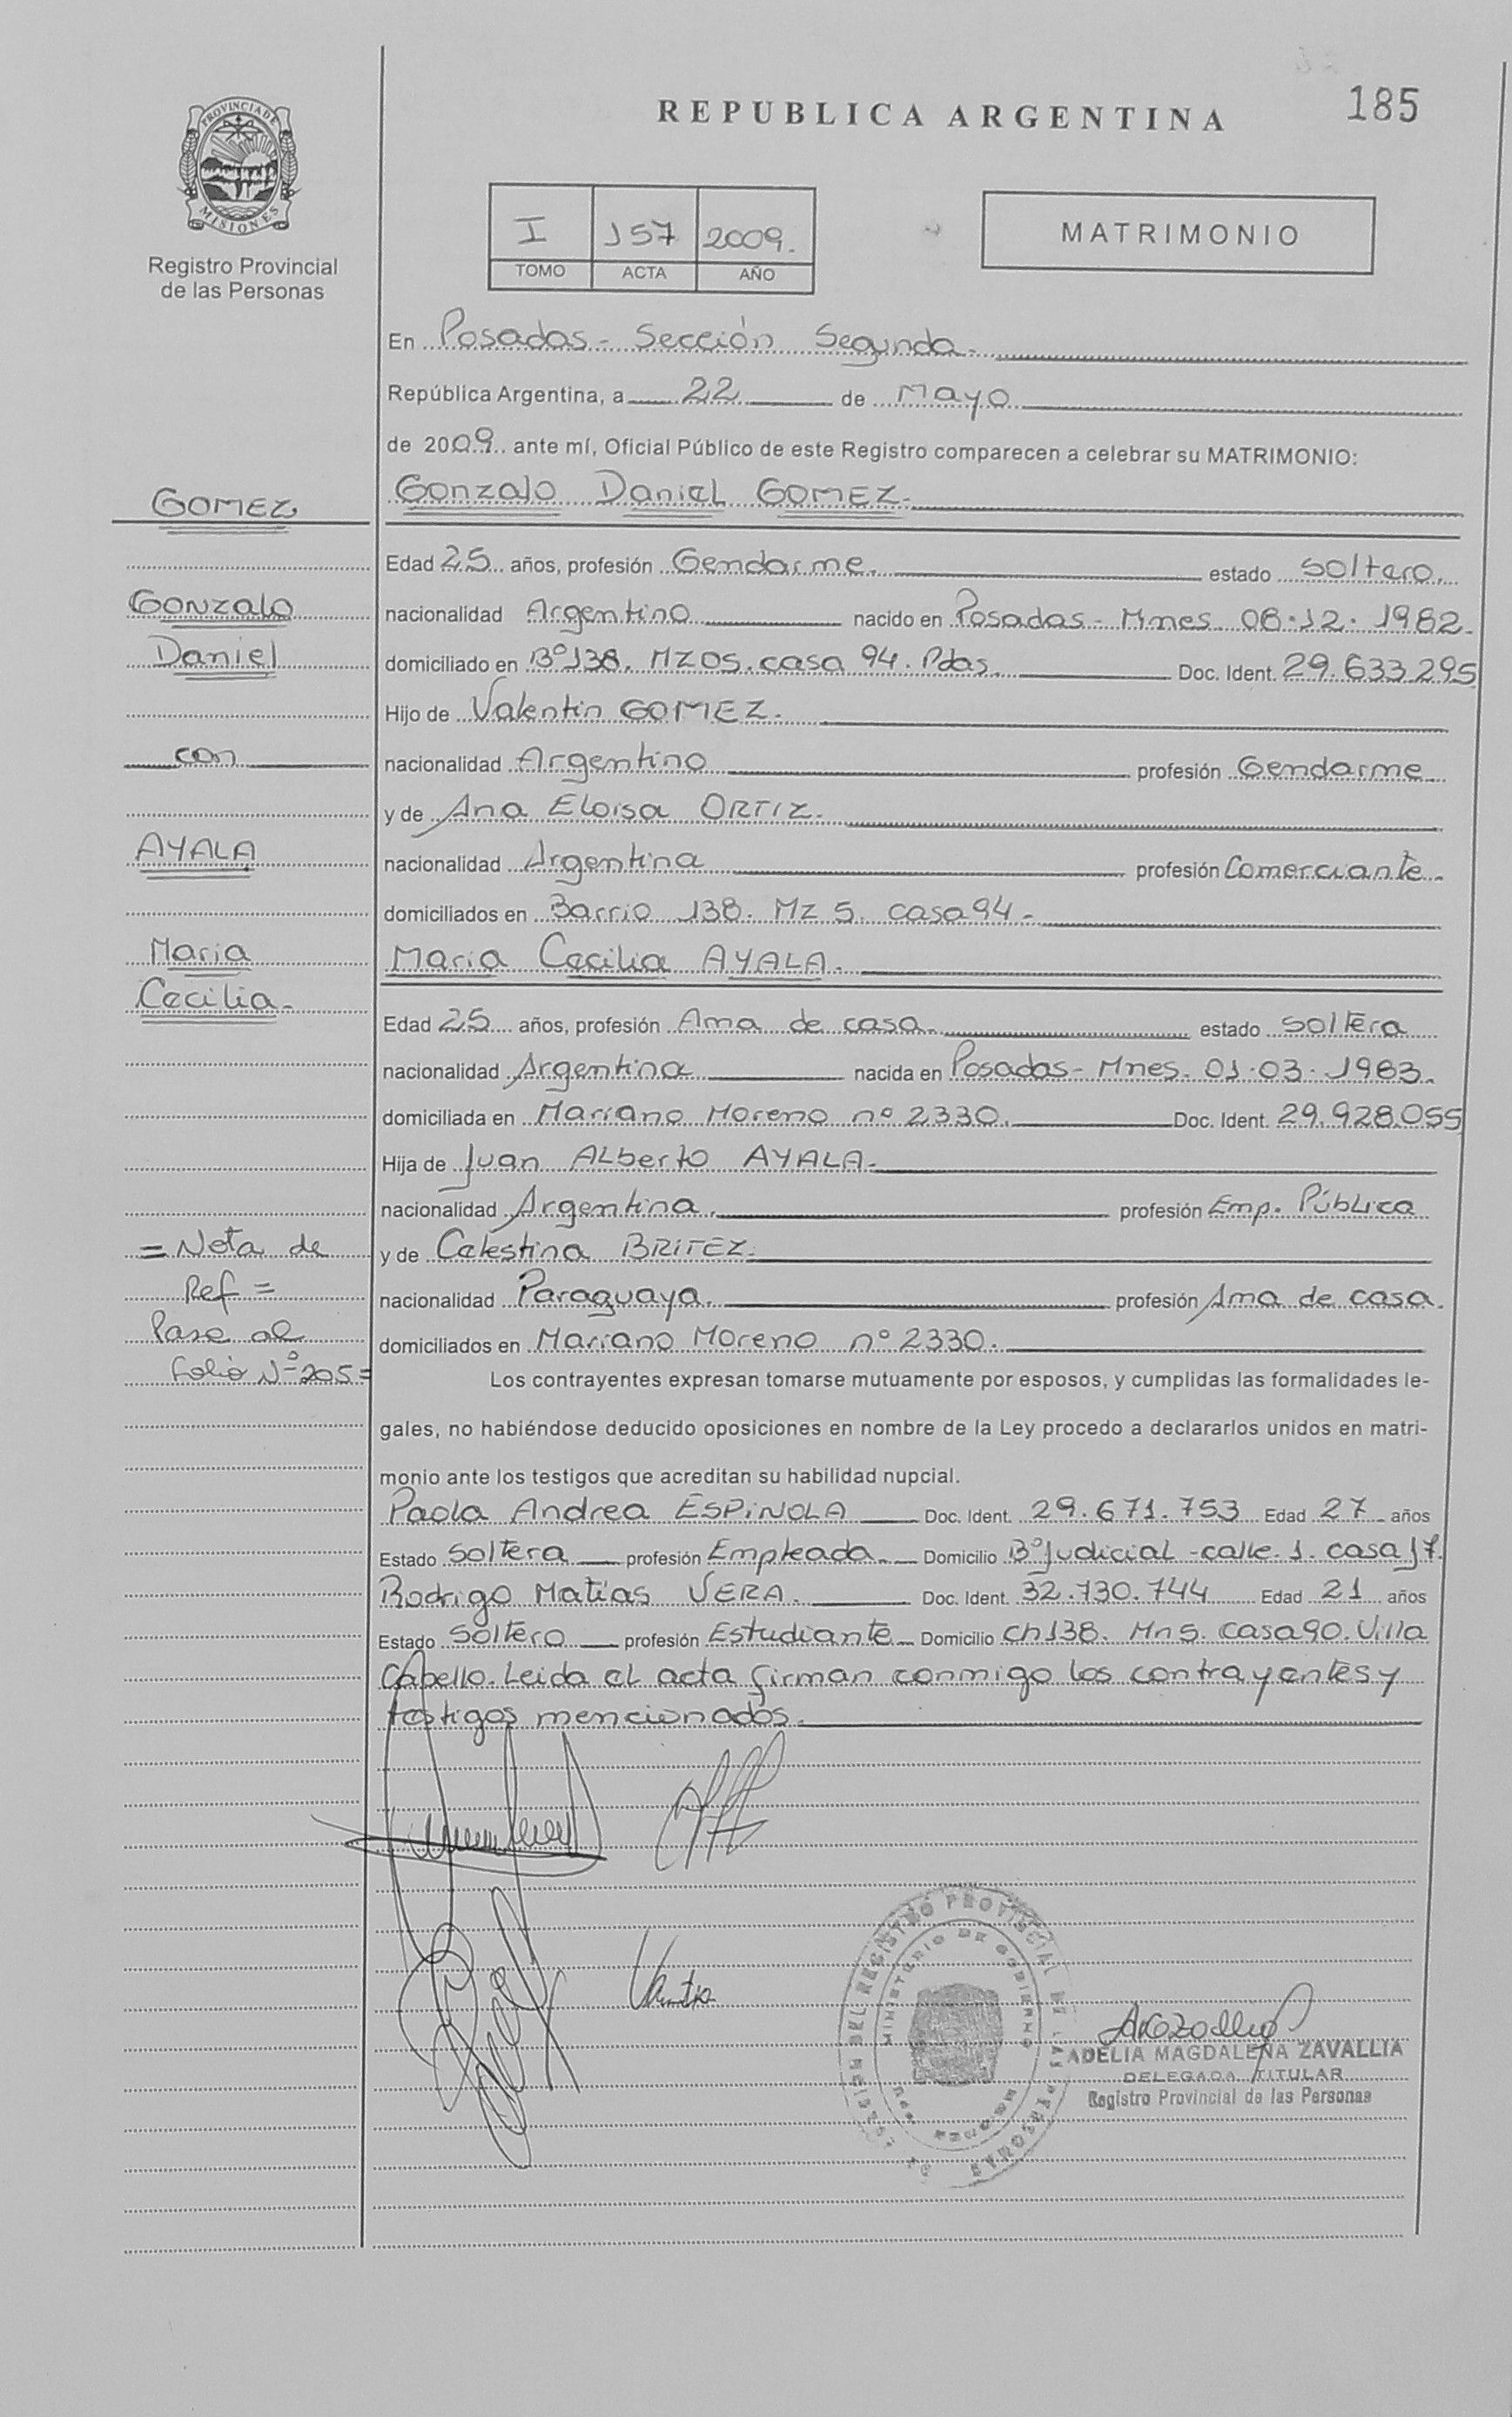 185
REPUBLICA ARGENTINA
PROVINCIA DE
MISIONES
Registro Provincial
de las Personas
I 157 2009.
TOMO ACTA AÑO
MATRIMONIO
En Posadas - Sección Segunda.
República Argentina, a 22 de Mayo
de 2009. ante mí, Oficial Público de este Registro comparecen a celebrar su MATRIMONIO:
GOMEZ
Gonzalo Daniel GOMEZ.
Edad 25 años, profesión Gendarme. estado soltero.
Gonzalo
nacionalidad Argentino nacido en Posadas - Mnes. 08.12.1982.
Daniel
domiciliado en Bº138. MZ05. casa 94. Pdas. Doc. Ident. 29.633.295
Hijo de Valentin GOMEZ.
con
nacionalidad Argentino profesión Gendarme
y de Ana Eloisa ORTIZ.
AYALA
nacionalidad Argentina profesión Comerciante
domiciliados en Barrio 138. Mz 5. casa 94 -
Maria
Maria Cecilia AYALA.
Cecilia -
Edad 25 años, profesión Ama de casa. estado soltera
nacionalidad Argentina nacida en Posadas - Mnes. 01.03.1983.
domiciliada en Mariano Moreno nº 2330. Doc. Ident. 29.928.055
Hija de Juan Alberto AYALA.
nacionalidad Argentina. profesión Emp. Pública
= Nota de
y de Celestina BRITEZ.
Ref =
nacionalidad Paraguaya. profesión Ama de casa.
Pase al
domiciliados en Mariano Moreno nº 2330.
folio Nº 205 =
Los contrayentes expresan tomarse mutuamente por esposos, y cumplidas las formalidades le-
gales, no habiéndose deducido oposiciones en nombre de la Ley procedo a declararlos unidos en matri-
monio ante los testigos que acreditan su habilidad nupcial.
Paola Andrea ESPINOLA Doc. Ident. 29.671.753 Edad 27 años
Estado soltera profesión Empleada. Domicilio Bº Judicial - calle. 1. casa 17.
Rodrigo Matías VERA. Doc. Ident. 32.730.744 Edad 21 años
Estado Soltero profesión Estudiante Domicilio Ch138. Mn5. casa 90. Villa
Cabello. Leida el acta firman conmigo los contrayentes y
testigos mencionados.
REGISTRO PROVINCIAL DE LAS PERSONAS
MINISTERIO DE GOBIERNO
ADELIA MAGDALENA ZAVALLIA
DELEGADA TITULAR
Registro Provincial de las Personas